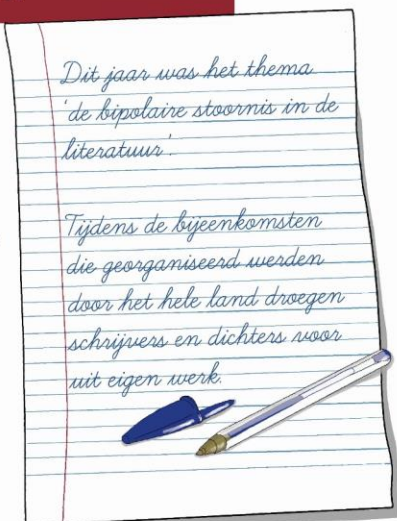 Dit jaar was het thema
'de bipolaire stoornis in de
literatuur'.
Tijdens de bijeenkomsten
die georganiseerd werden
door het hele land droegen
schrijvers en dichters voor
uit eigen werk.